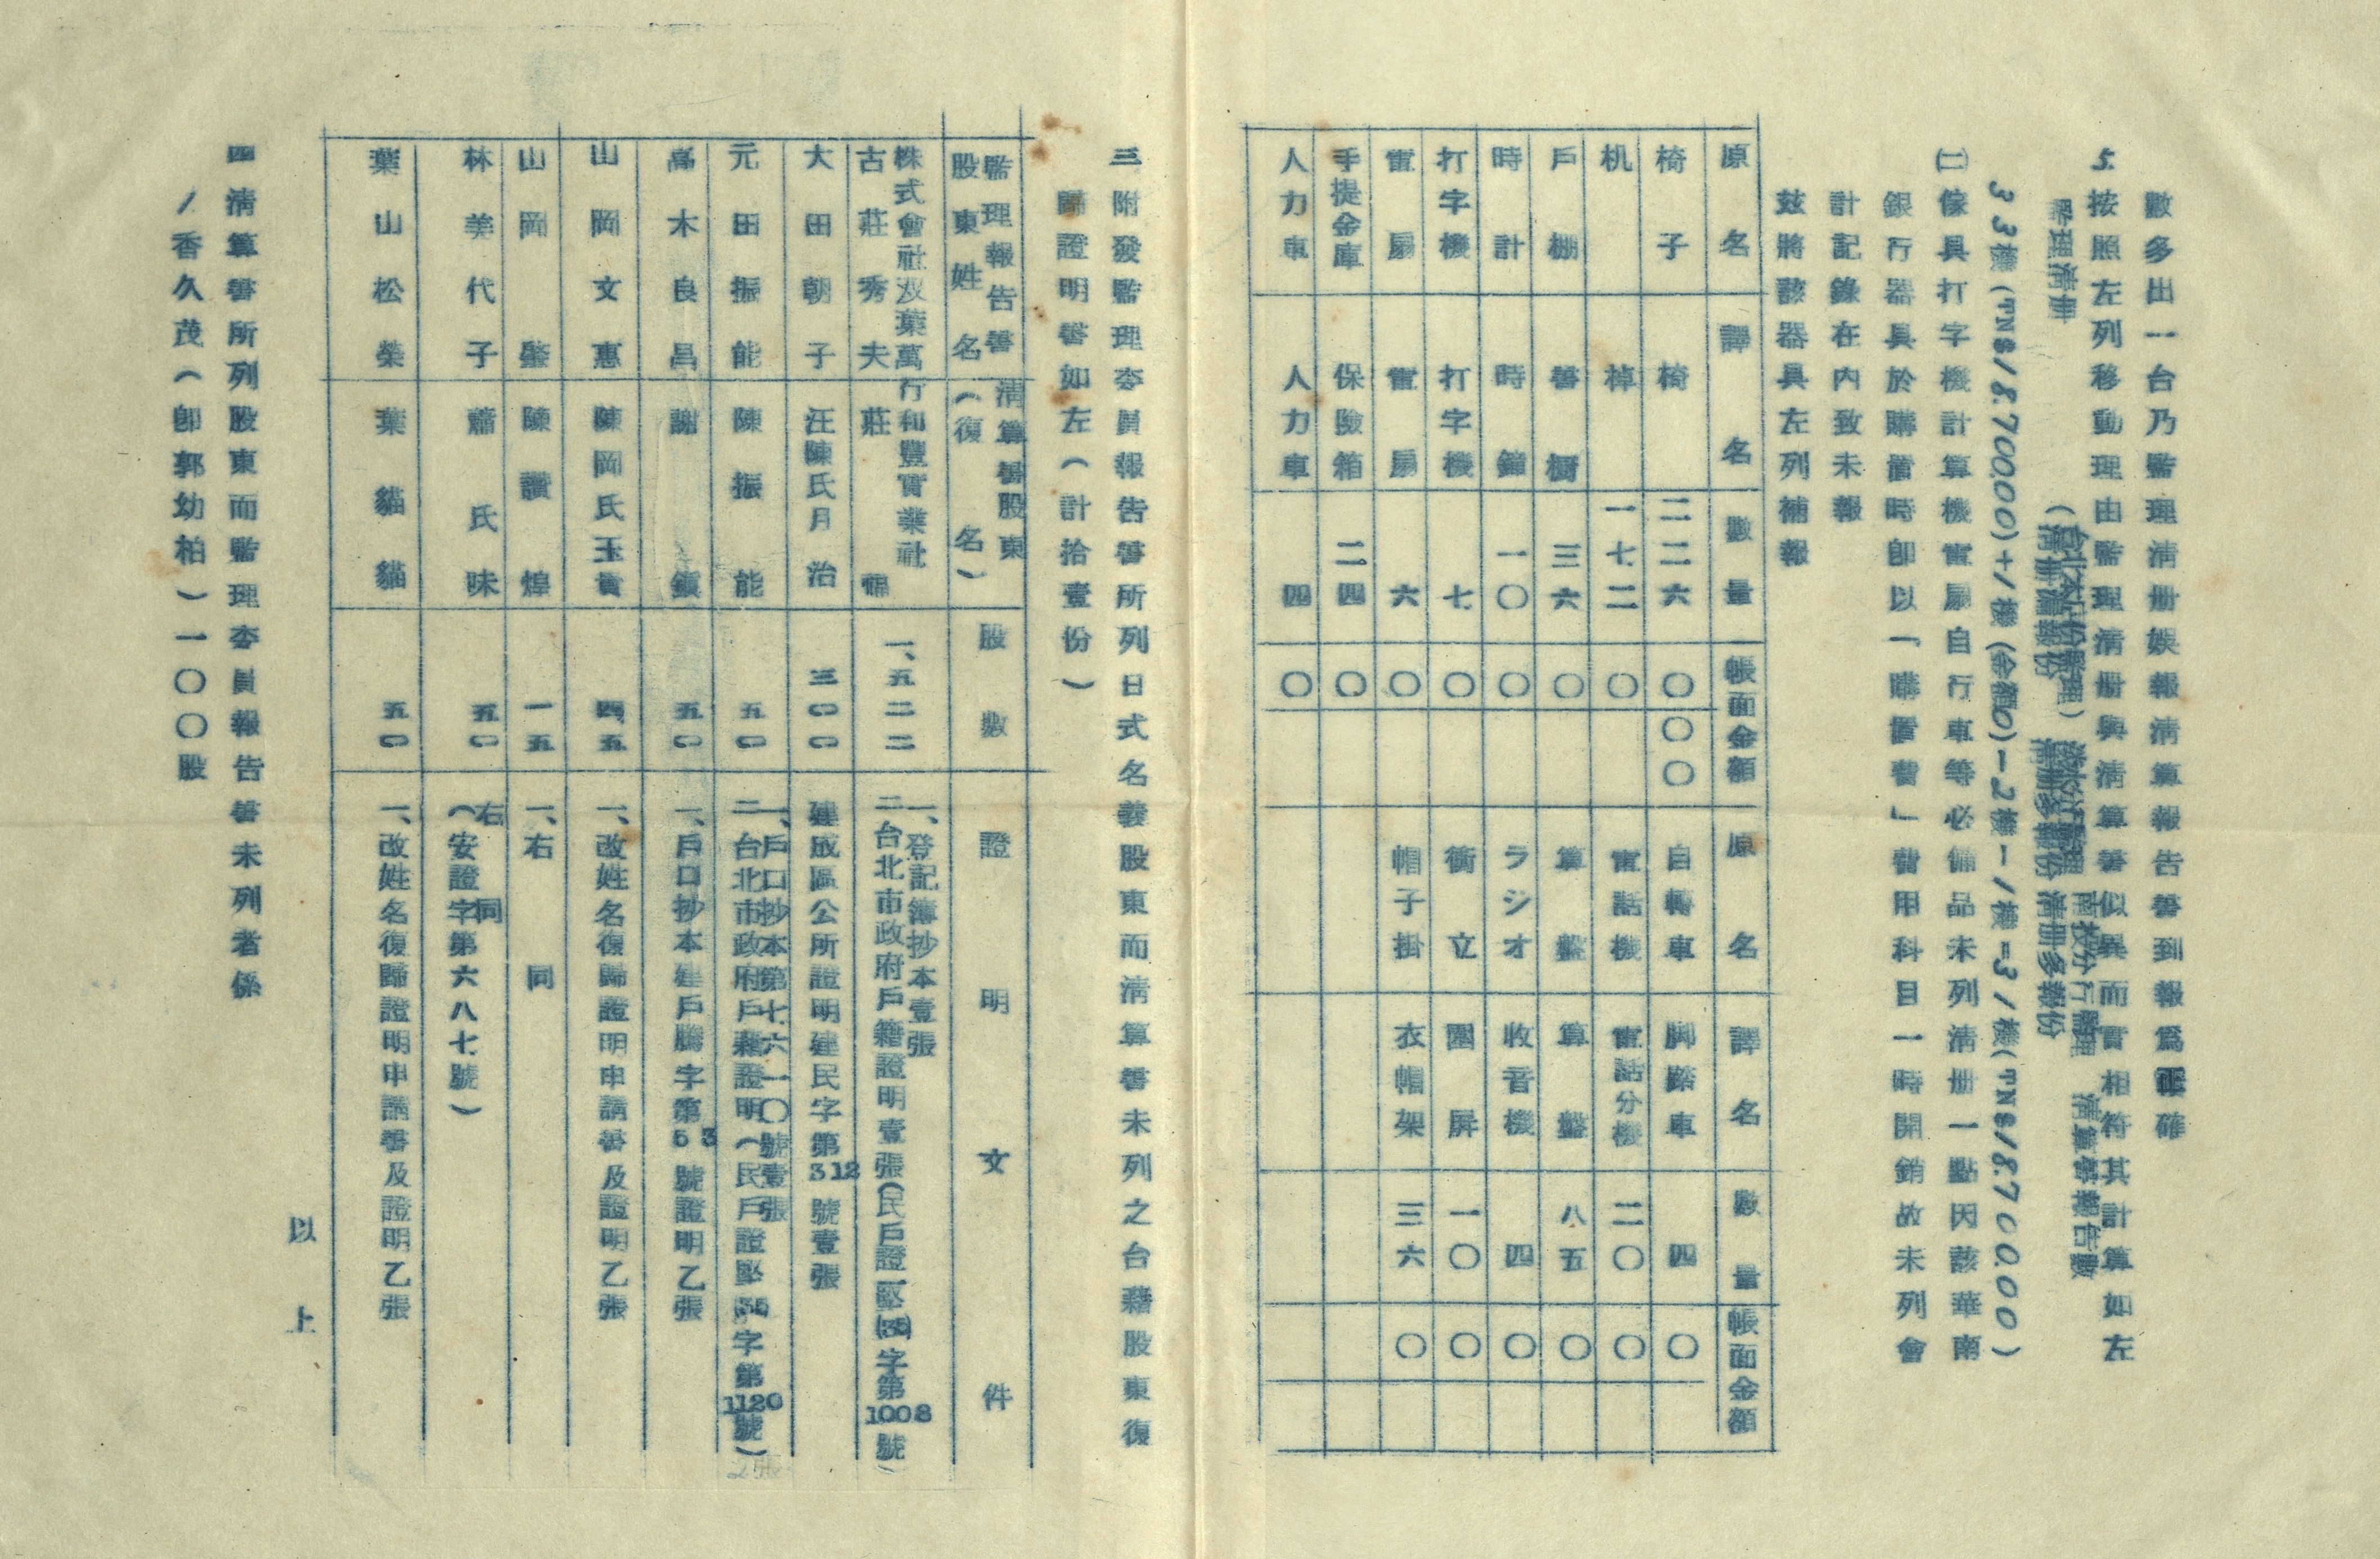 數多出一台乃監理淸册娛報淸算報告書到報爲正確
5.按照左列移動理由監理淸册與淸算書似異而實相符其計算如左
監理淸册
(台北本店份監理) 淡水分行監理 南投分行監理 淸算書報告數
(淸册漏報份 淸册多報份 淸册多報份
33機(TN$18.700.00)+1機(金額0)-2機-1機=31機(TN$18.700.00)
(二)傢具打字機計算機電扇自行車等必備品未列淸册一點因該華南
銀行器具於購置時卽以「購置費」費用科目一時開銷故未列會
計記錄在內致未報
玆將該器具左列補報
原名 譯名 數量 帳面金額 原名 譯名 數量 帳面金額
椅子 椅 二二六 〇〇〇 自轉車 脚踏車 四 〇
机 棹 一七二 〇 電話機 電話分機 二〇 〇
戶棚 書櫥 三六 〇 算盤 算盤 八五 〇
時計 時鐘 一〇 〇 ラジオ 收音機 四 〇
打字機 打字機 七 〇 衝立 圍屏 一〇 〇
電扇 電扇 六 〇 帽子掛 衣帽架 三六 〇
手提金庫 保險箱 二四 〇
人力車 人力車 四 〇
三附發監理委員報告書所列日式名義股東而淸算書未列之台籍股東復
歸證明書如左(計拾壹份)
監理報告書股東姓名 淸算書股東(復名) 股數 證明文件
株式會社双葉萬行 和豐實業社 一、登記簿抄本壹張
古莊秀夫 莊 福 一、五二二 二台北市政府戶籍證明壹張(民戶證堅(36)字第1008號)
大田朝子 汪陳氏月治 三〇〇 建成區公所證明建民字第312號壹張
元田振能 陳振能 五〇 一、戶口抄本第七六一〇號壹張
二台北市政府戶籍證明(民戶證堅(36)字第1120號) 2張
高木良昌 謝鎮 五〇 一、戶口抄本建戶騰字第53號證明乙張
山岡文惠 陳岡氏玉貴 四五 一、改姓名復歸證明申請書及證明乙張
山岡鑒 陳讚煌 一五 一、右同
林美代子 蕭氏味 五〇 右同(安證字第六八七號)
葉山松榮 葉貓貓 五〇 一、改姓名復歸證明申請書及證明乙張
以上
四淸算書所列股東而監理委員報告書未列者係
1香久茂(卽郭幼柏)一〇〇股